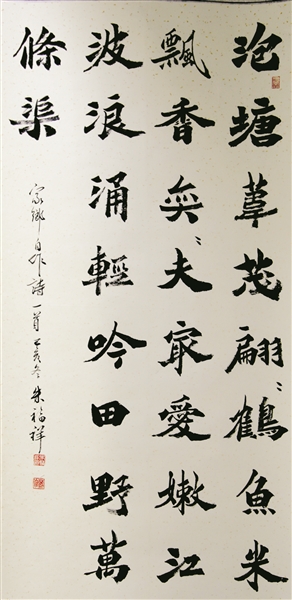 泡塘葦茂翩〻鶴魚米
飄香奕〻夫㝡愛嫩江
波浪涌輕吟田野萬
條渠
家鄉自作詩一首亥冬朱福祥